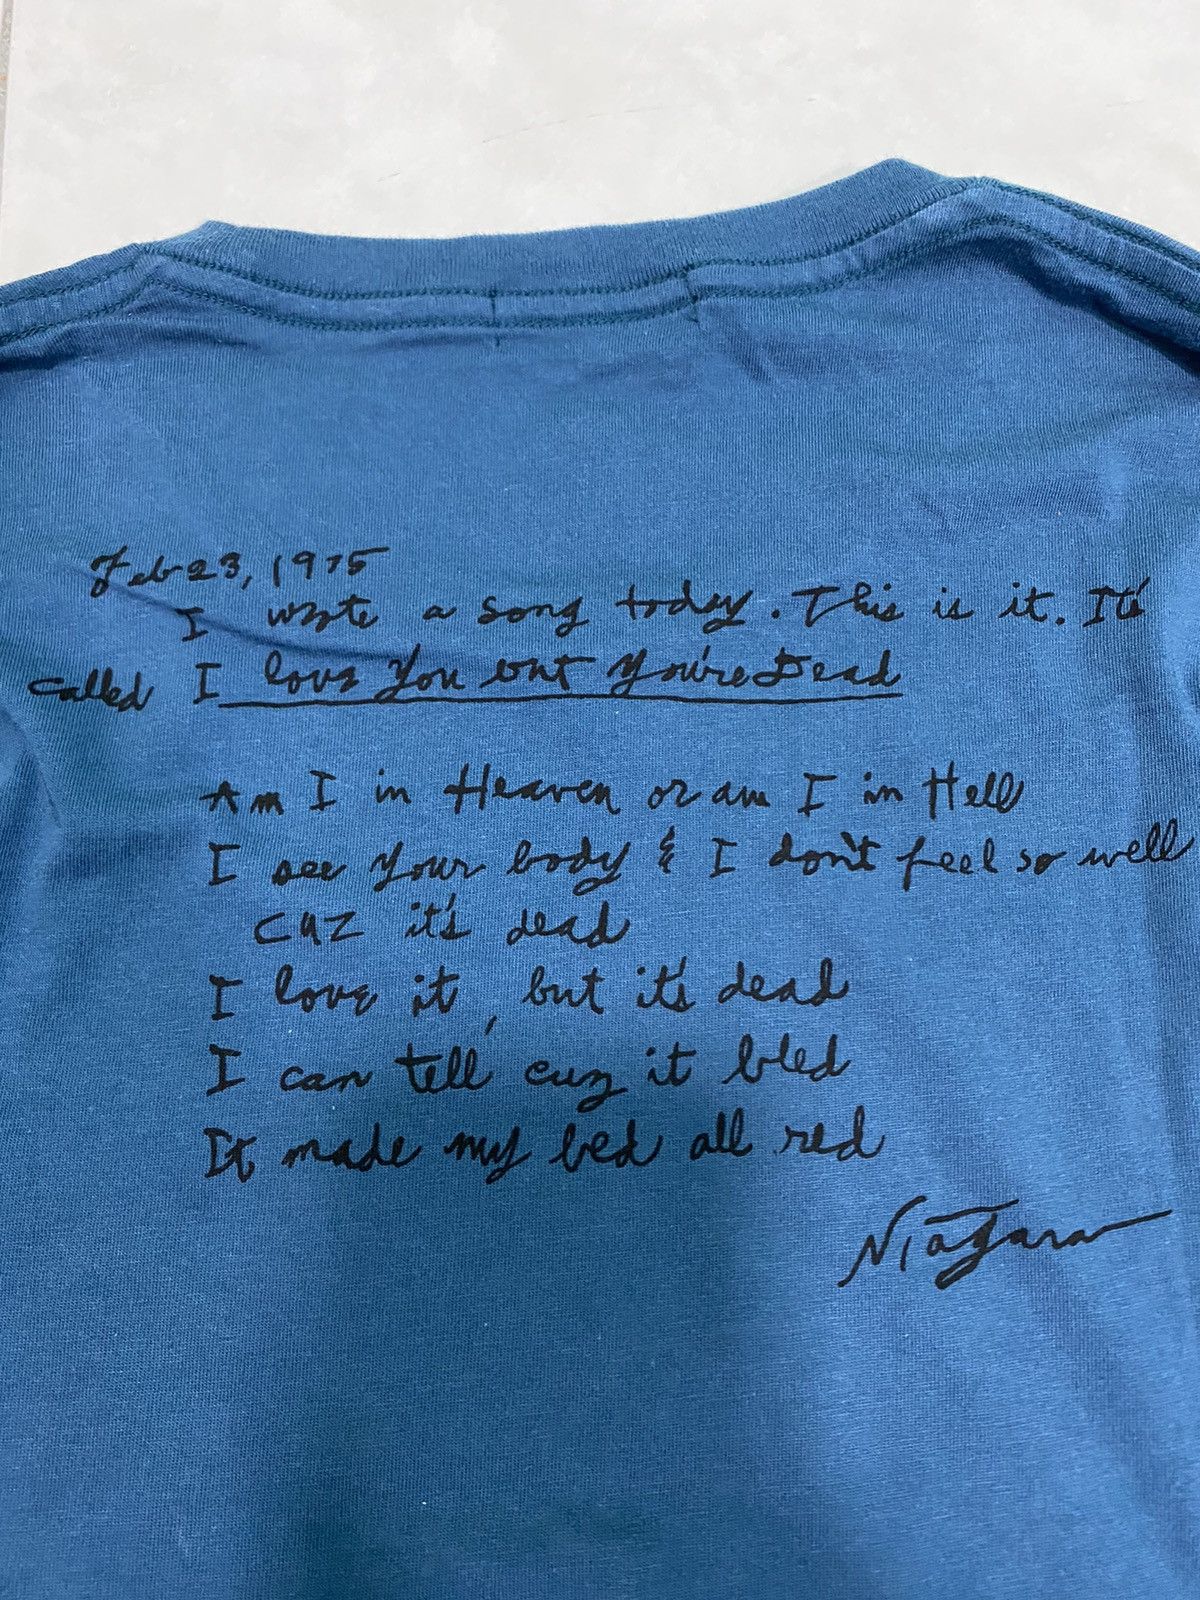 Feb 23, 1975
I wrote a song today. This is it. It's
called I love you but you're Dead
Am I in Heaven or am I in Hell
I see your body & I don't feel so well
cuz it's dead
I love it, but it's dead
I can tell cuz it bled
It made my bed all red
Niagara